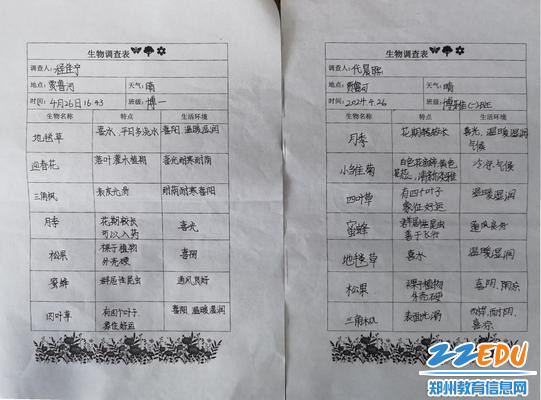 生物调查表
调查人:程佳宁
地点:贾鲁河 天气:晴
时间:4月26日 16:43 班级:博一
生物名称 特点 生活环境
地毯草 喜水,平日多浇水 喜阳 温暖湿润
迎春花 落叶灌木植物 喜光耐寒耐雨
三角枫 表皮光滑 耐荫耐寒喜阳
月季 花期较长 喜光
可以入药
松果 裸子植物 喜阴
外壳硬
蜜蜂 群居性昆虫 通风良好
四叶草 有四个叶子 喜阳 温暖湿润
寓住好运
生物调查表
调查人:代晨熙
地点:贾鲁河 天气:晴
时间:2024.4.26 班级:
生物名称 特点 生活环境
月季 花期较长 喜光,温暖湿润
气候
小雏菊 白色花金黄色 冷凉气候
四叶草 有四个叶子 温暖湿润
象征好运
蜜蜂 群居性昆虫 通风良好
善于飞行
地毯草 喜水 温暖湿润
松果 裸子植物 喜阴,
外壳硬
三角枫 表面光滑 耐阴,
喜凉
22EDU
郑州教育信息网